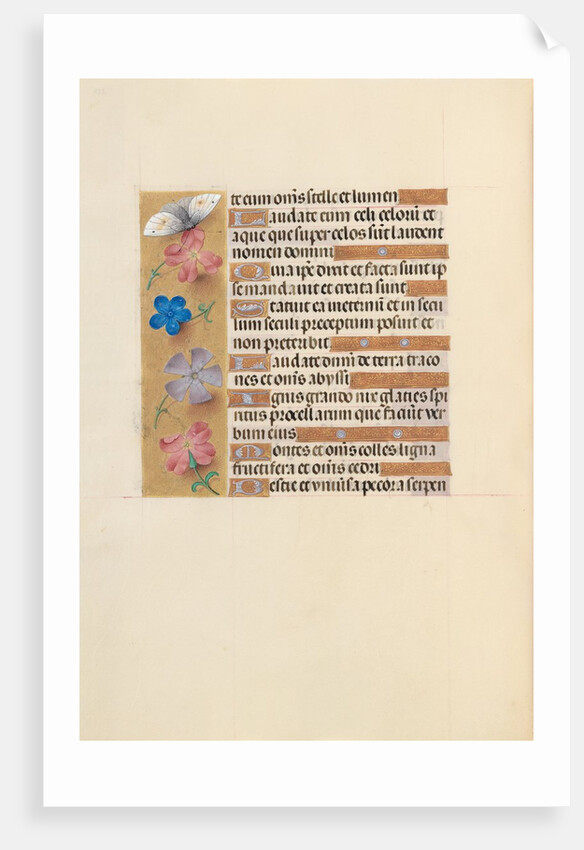 te eum om̄s stelle et lumen
Laudate eum celi celorū et
aque que super celos sūt laudent
nomen domini
Quia ip̄e dixit et facta sunt ip
se mandauit et creata sunt
Statuit ea in eternū et in secu
lum seculi preceptum posuit et
non preteribit
Laudate dn̄m de terra traco
nes et om̄s abyssi
Ignis grando nix glacies spi
ritus procellarum que faciūt ver
bum eius
Montes et om̄s colles ligna
fructifera et om̄s cedri
Bestie et vniūsa pecora serpen